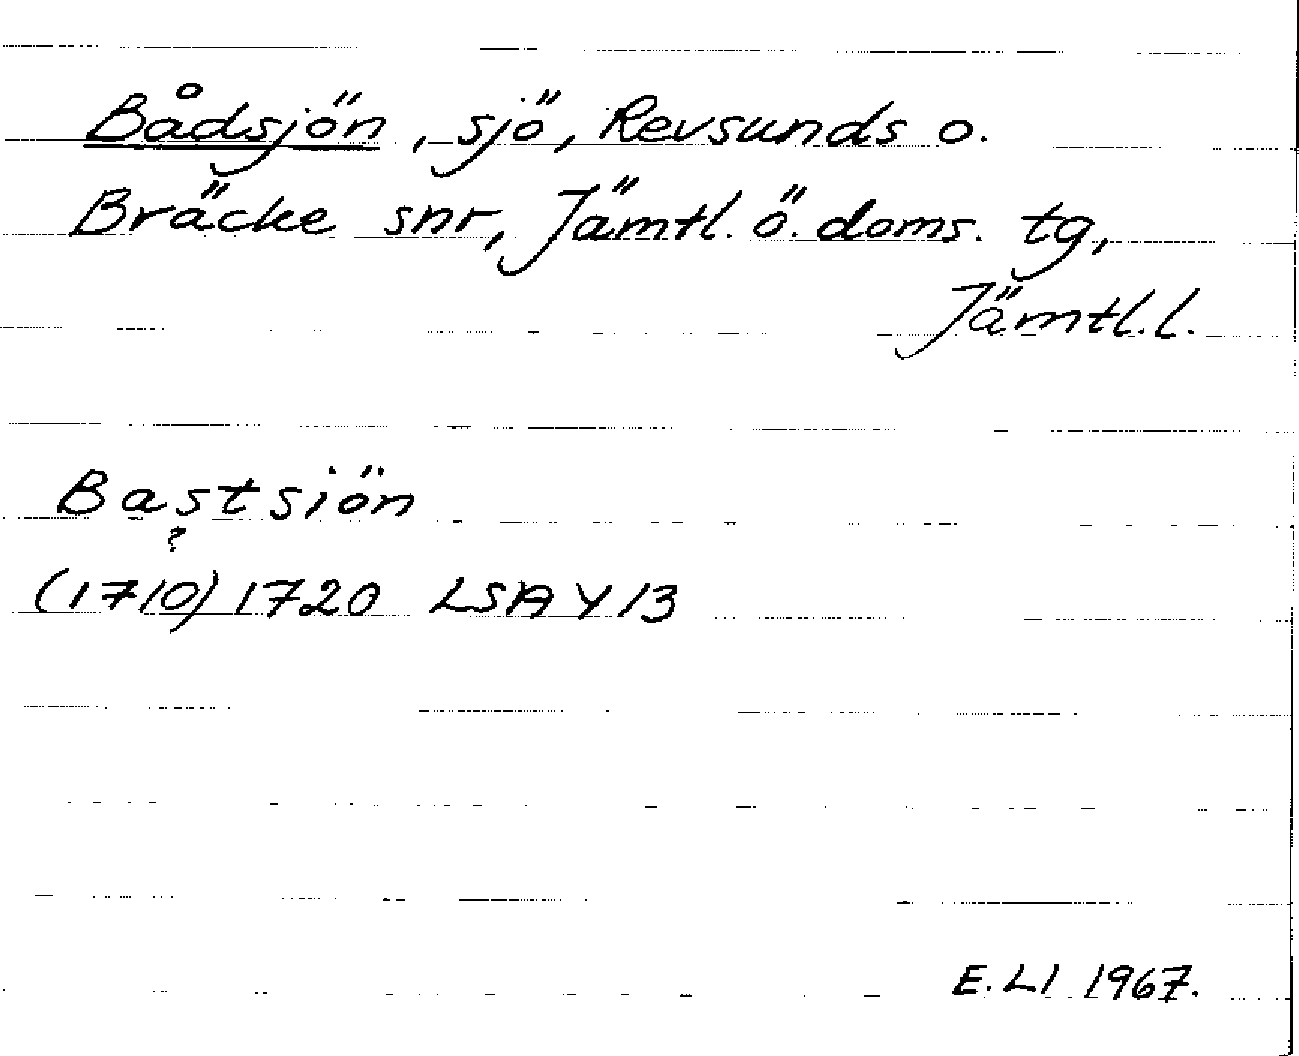 Bådsjön, sjö, Revsunds o.
Bräcke snr, Jämtl. ö. doms. tg,
Jämtl. l.
Bastsiön
?
(1710) 1720 LSA Y 13
E. Ll 1967.